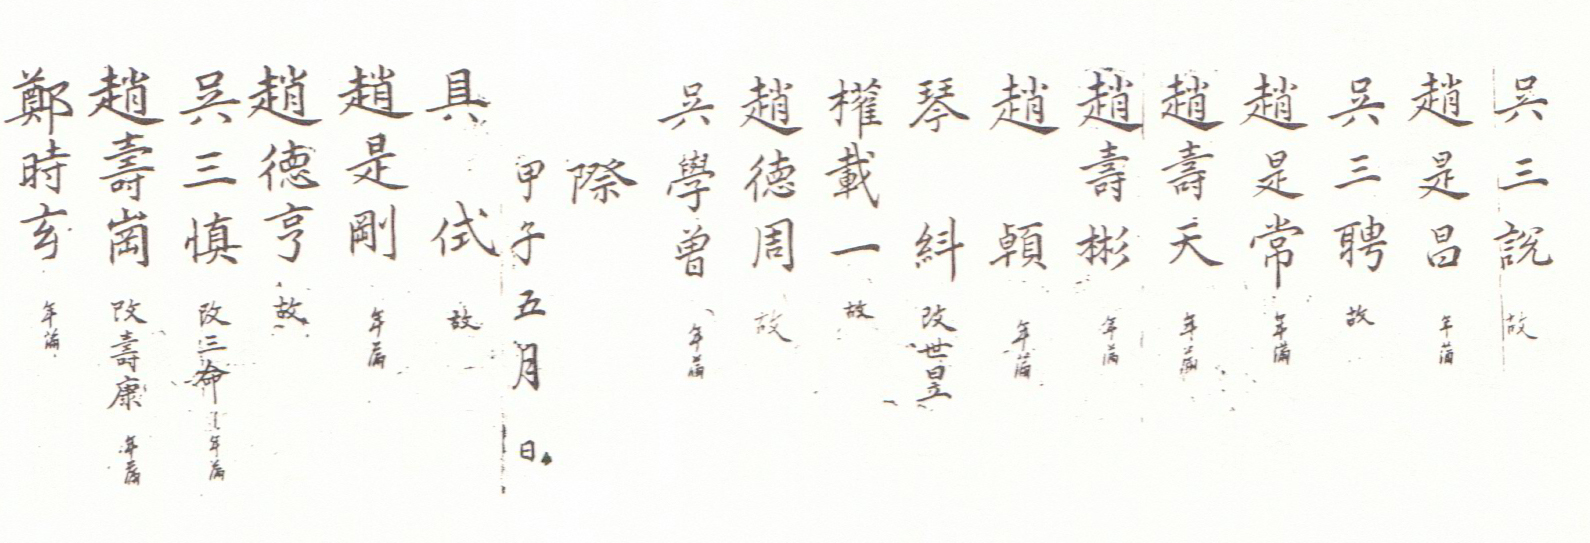 吳三說 故
趙是昌 年滿
吳三聘 故
趙是常 年滿
趙壽天 年滿
趙壽彬 年滿
趙 頔 年滿
琴 糾 改世星
權載一 故
趙德周 故
吳學曾 年滿
際
甲子五月 日
具 侙 故
趙是剛 年滿
趙德亨 故
吳三慎 改三命 年滿
趙壽崗 改壽康 年滿
鄭時玄 年滿